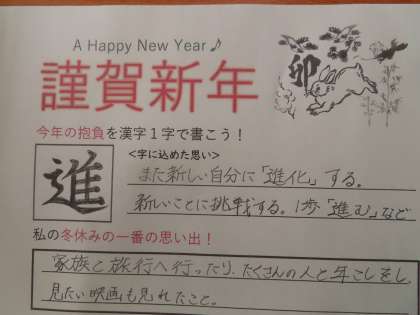 A Happy New Year♪
謹賀新年
卯
今年の抱負を漢字1字で書こう！
進
<字に込めた思い>
また新しい自分に「進化」する。
新しいことに挑戦する。1歩「進む」など
私の冬休みの一番の思い出！
家族と旅行へ行ったり、たくさんの人と年こしをし、
見たい映画も見れたこと。